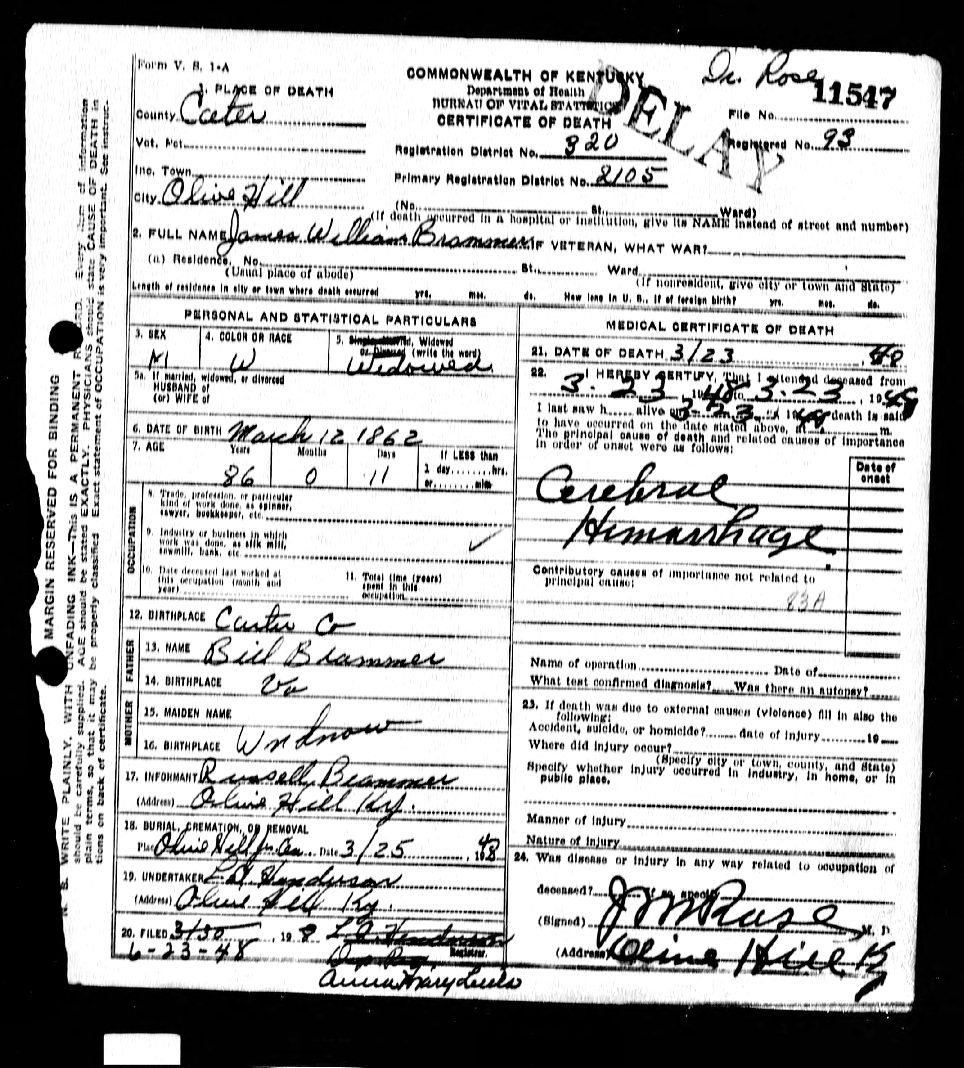 Form V. S. 1-A
Dr. Rose
11547
DELAY
COMMONWEALTH OF KENTUCKY
Department of Health
BUREAU OF VITAL STATISTICS
CERTIFICATE OF DEATH
File No.
Registered No. 93
Registration District No. 320
Primary Registration District No. 2105
1. PLACE OF DEATH
County Carter
Vot. Pct.
Inc. Town
City Olive Hill
(No. St. Ward)
(If death occurred in a hospital or institution, give its NAME instead of street and number)
2. FULL NAME James William Brammer IF VETERAN, WHAT WAR?
(a) Residence. No. St. Ward
(Usual place of abode) (If nonresident, give city or town and State)
Length of residence in city or town where death occurred yrs. mos. ds. How long in U. S., if of foreign birth? yrs. mos. ds.
PERSONAL AND STATISTICAL PARTICULARS
3. SEX 4. COLOR OR RACE 5. Single, Married, Widowed
or Divorced (write the word)
M W Widowed
5a. If married, widowed, or divorced
HUSBAND of
(or) WIFE of
6. DATE OF BIRTH March 12 1862
7. AGE Years Months Days If LESS than
1 day, hrs.
86 0 11 or min
OCCUPATION
8. Trade, profession, or particular
kind of work done, as spinner,
sawyer, bookkeeper, etc.
9. Industry or business in which
work was done, as silk mill,
sawmill, bank, etc
10. Date deceased last worked at
this occupation (month and
year)
11. Total time (years)
spent in this
occupation
12. BIRTHPLACE Carter Co
FATHER
13. NAME Bill Brammer
14. BIRTHPLACE Va
MOTHER
15. MAIDEN NAME
16. BIRTHPLACE
17. INFORMANT Russell Brammer
(Address) Olive Hill Ky.
18. BURIAL, CREMATION, OR REMOVAL
Place Olive Hill Date 3/25 1948
19. UNDERTAKER Henderson
(Address) Olive Hill Ky.
20. FILED 3/30 19 8 Henderson
6-23-48 Registrar.
MEDICAL CERTIFICATE OF DEATH
21. DATE OF DEATH 3/23 48
22. I HEREBY CERTIFY, That I attended deceased from
3-23, 1948 to 3-23, 1948
I last saw h alive on 3-23, 1948, death is said
to have occurred on the date stated above, at m.
The principal cause of death and related causes of importance
in order of onset were as follows:
Date of
onset
Cerebral
Hemarrhage
Contributory causes of importance not related to
principal cause:
83A
Name of operation Date of
What test confirmed diagnosis? Was there an autopsy?
23. If death was due to external causes (violence) fill in also the
following:
Accident, suicide, or homicide? date of injury 19
Where did injury occur?
(Specify city or town, county, and State)
Specify whether injury occurred in industry, in home, or in
public place.
Manner of injury
Nature of injury
24. Was disease or injury in any way related to occupation of
deceased? If so, specify
(Signed) Rose M. D.
(Address) Olive Hill Ky
MARGIN RESERVED FOR BINDING
N. B. WRITE PLAINLY, WITH UNFADING INK—THIS IS A PERMANENT RECORD. Every item of information
should be carefully supplied. AGE should be stated EXACTLY. PHYSICIANS should state CAUSE OF DEATH in
plain terms, so that it may be properly classified. Exact statement of OCCUPATION is very important. See instruc-
tions on back of certificate.